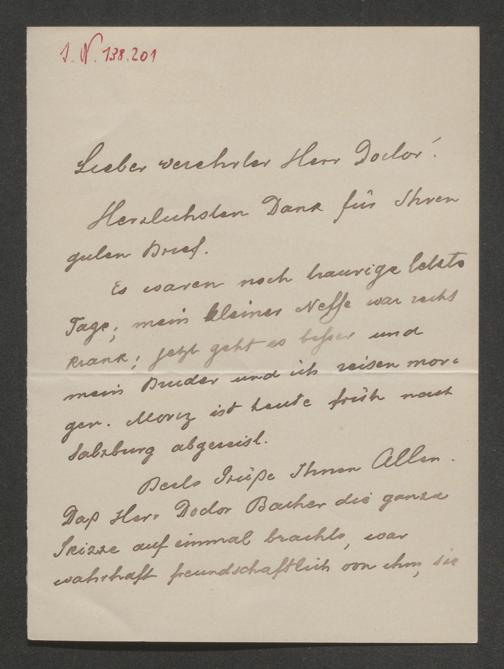 J. N. 138.201
Lieber verehrter Herr Doctor!
Herzlichsten Dank für Ihren
guten Brief.
Es waren noch traurige letzte
Tage; mein kleiner Neffe war recht
krank; jetzt geht es besser und
mein Bruder und ich reisen mor-
gen. Moriz ist heute früh nach
Salzburg abgereist.
Beste Grüße Ihnen Allen.
Daß Herr Doctor Bacher die ganze
Skizze auf einmal brachte, war
wahrhaft freundschaftlich von ihm, sie